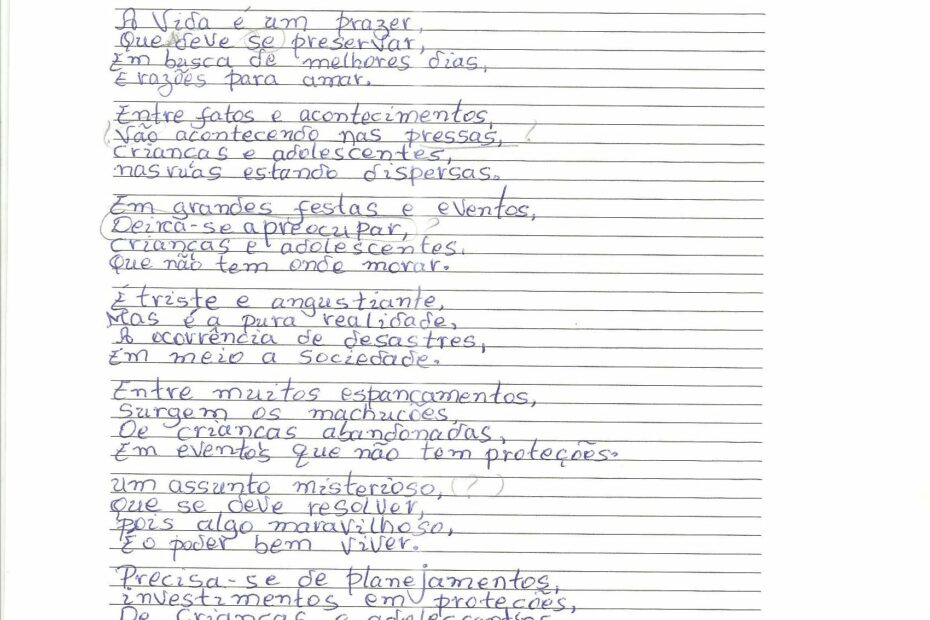 A Vida é um prazer,
Que deve se preservar,
Em busca de melhores dias,
E razões para amar.
Entre fatos e acontecimentos,
(Vão acontecendo nas pressas, ?
Crianças e adolescentes,
nas ruas estando dispersas.
Em grandes festas e eventos,
(Deixa-se a preocupar, ?
Crianças e adolescentes.
Que não tem onde morar.
É triste e angustiante,
Mas é a pura realidade,
A ocorrência de desastres,
Em meio a sociedade.
Entre muitos espancamentos,
Surgem os machucões,
De crianças abandonadas,
Em eventos que não tem proteções.
Um assunto misterioso, (?)
Que se deve resolver,
Pois algo maravilhoso,
É o poder bem viver.
Precisa-se de planejamentos,
investimentos em proteções,
De crianças e adolescentes